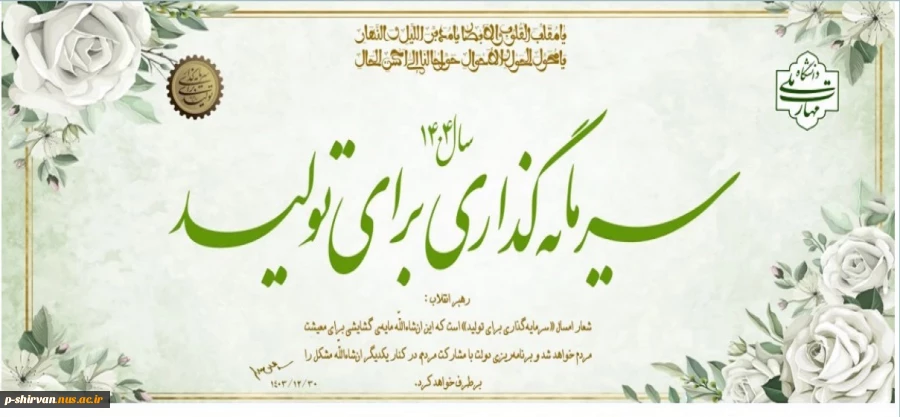 یا مقلب القلوب و الابصار یا مدبر اللیل و النهار
یا محول الحول و الاحوال حول حالنا الی احسن الحال
سرمایه‌گذاری برای تولید
دانشگاه ملی مهارت
سال ۱۴۰۴
سرمایه گذاری برای تولید
رهبر انقلاب :
شعار امسال «سرمایه‌گذاری برای تولید» است که این ان‌شاءاللّه مایه‌ی گشایشی برای معیشت
مردم خواهد شد و برنامه‌ریزی دولت با مشارکت مردم، در کنار یکدیگر ان‌شاءاللّه مشکل را
برطرف خواهد کرد.
۱۴۰۳/۱۲/۳۰
p-shirvan.nus.ac.ir